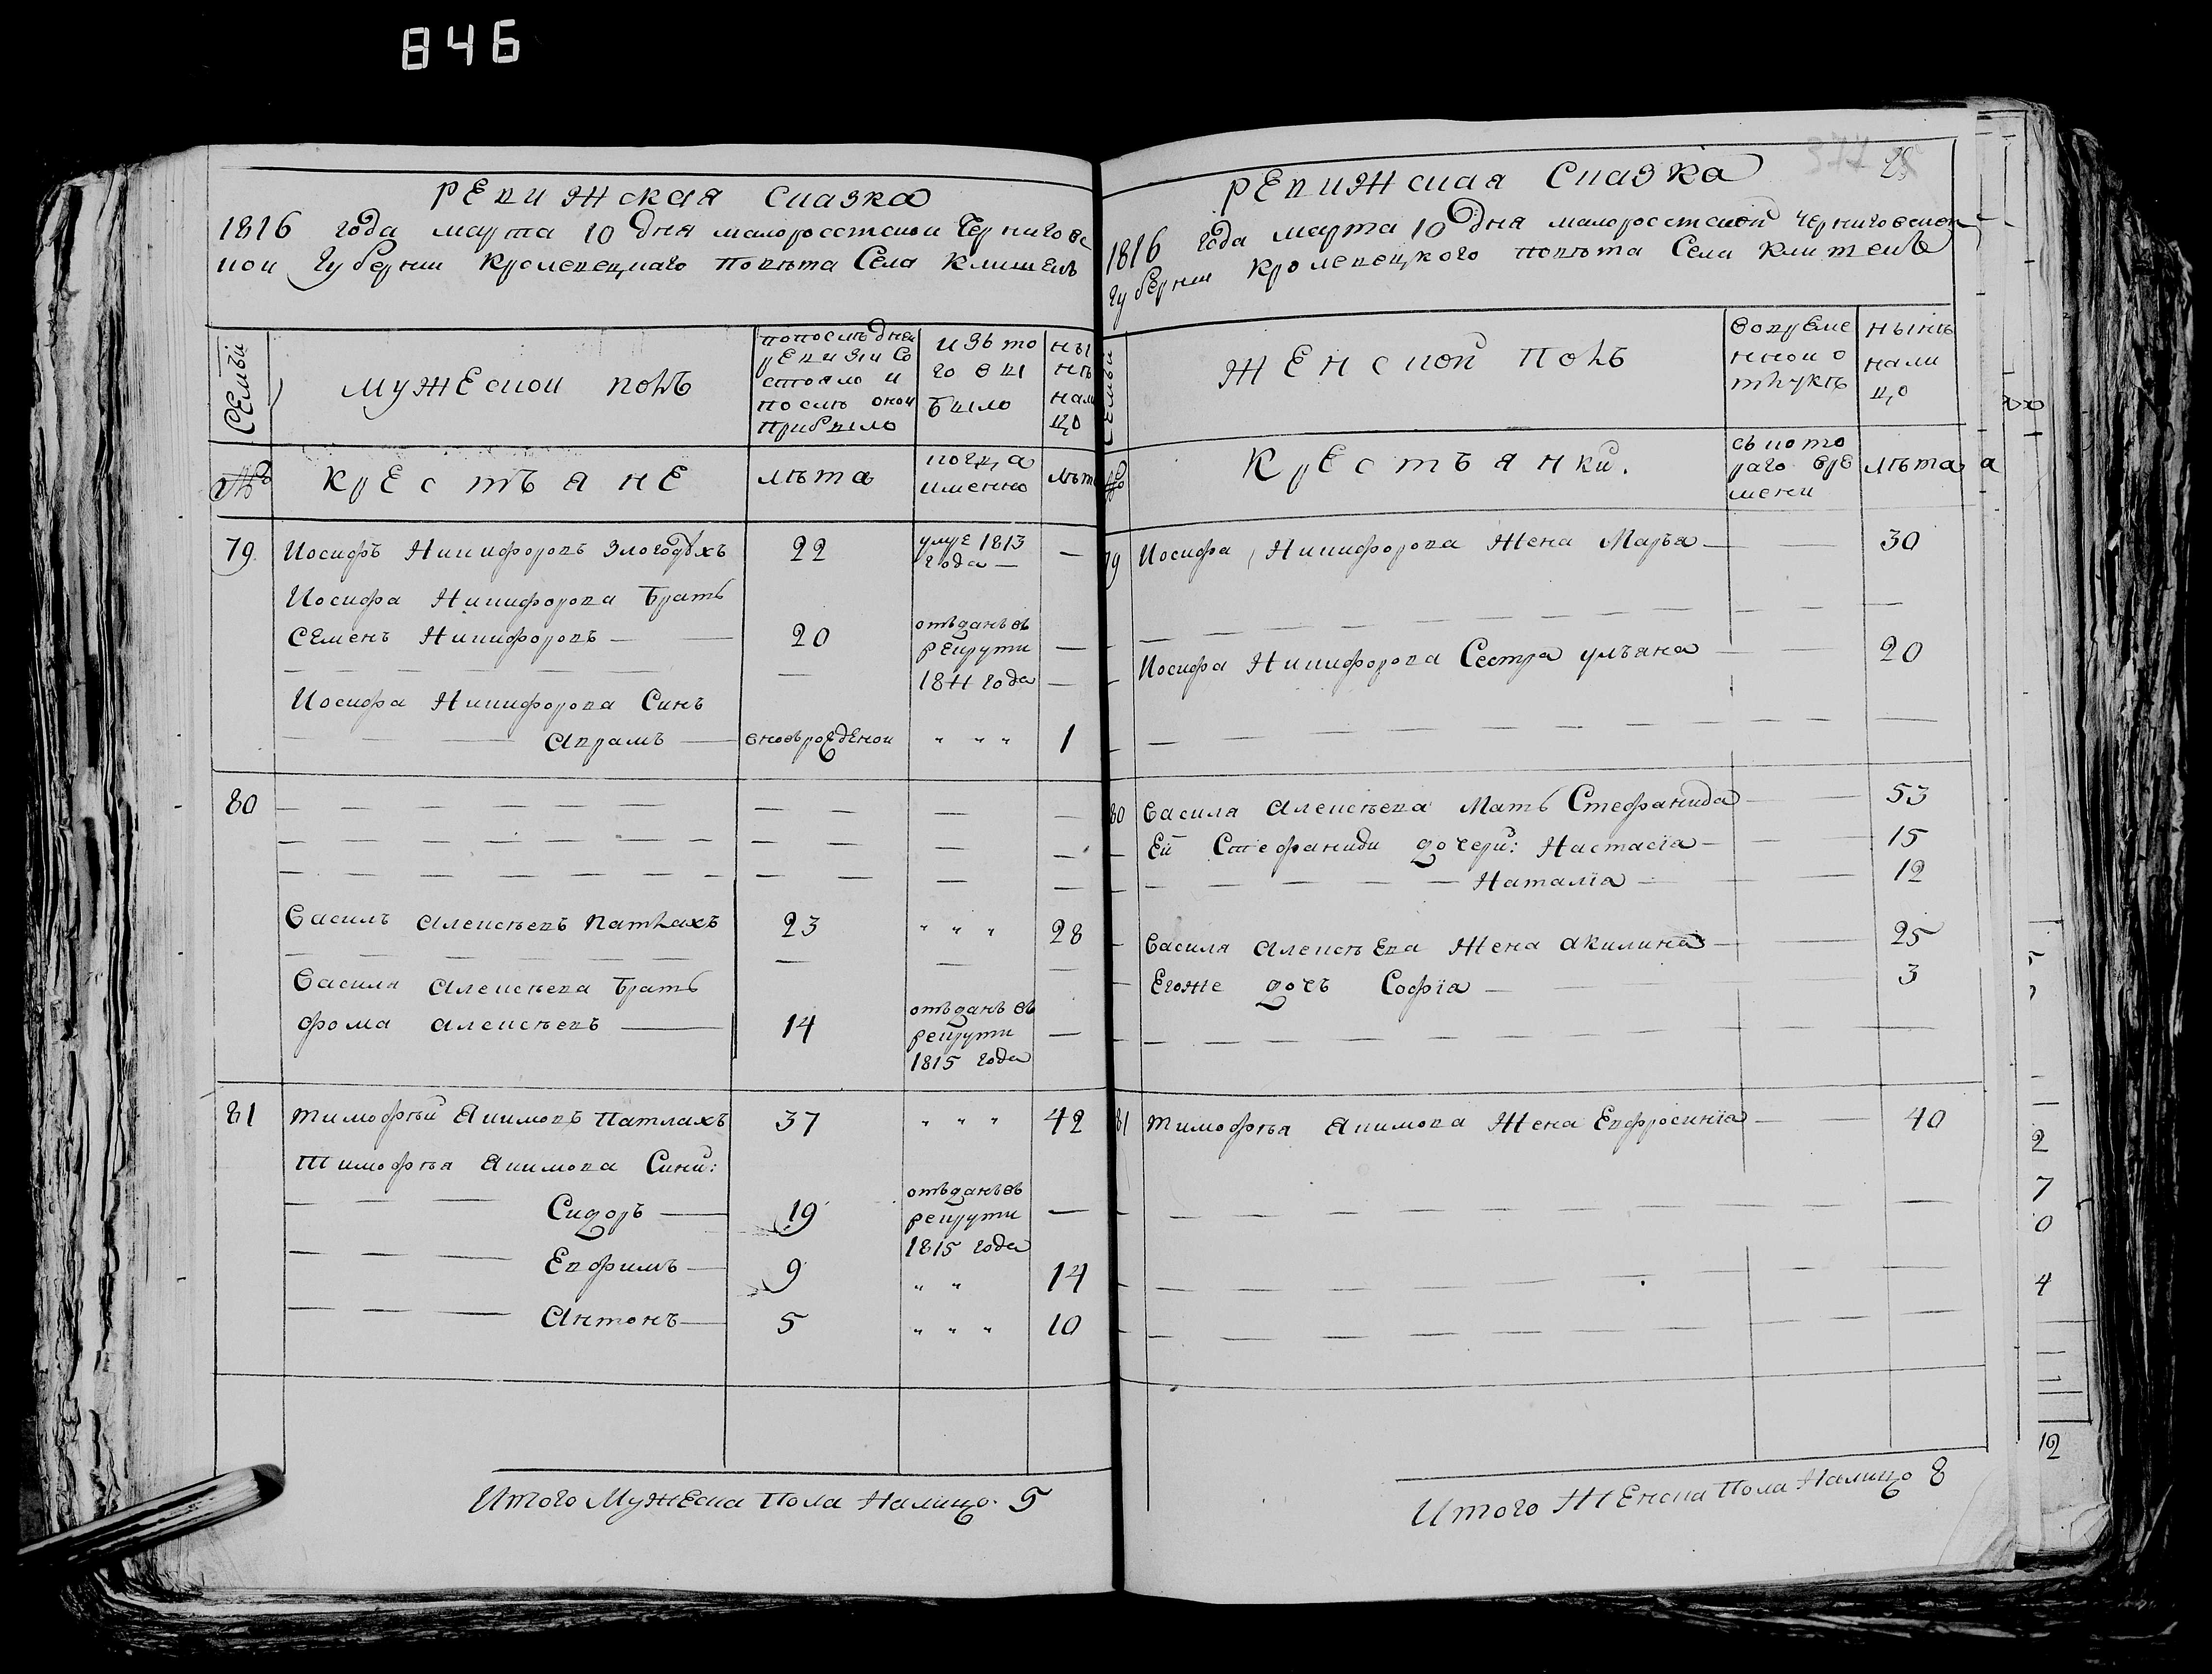 846
РЕВИЖСКАЯ СКАЗКА
1816 года марта 10 Дня малоросстской Черниговс
кой Губернии Кролевецкаго Повѣта Села Клишекъ
СЕмьи
мужЕской полъ
попослѣдней
рЕвизіи Со
стояло и
послѣ оной
прибыло
изъ то
го вы
было
ны
нѣ
нали
цо
№
крЕстьянЕ
лѣта
когда
именно
лѣта
79
Иосифъ Никифоровъ Злогодухъ
22
умре 1813
года —
—
Иосифа Никифорова Братъ
СЕменъ Никифоровъ —
20
отъданъ въ
рЕкрути
1811 года
—
Иосифа Никифорова Синъ
Аврамъ
вновърожденой
" " "
1
80
Василь Алексѣевъ Патлахъ
23
" " "
28
Василя Алексѣева Братъ
Фома Алексѣевъ —
14
отъданъ въ
рекрути
1815 года
—
81
Тимофѣй Якимовъ Патлахъ
37
" " "
42
Тимофѣя Якимова Сини:
Сидоръ —
19
отъданъ въ
рекрути
1815 года
—
Евфимъ —
9
" "
14
Антонъ —
5
" " "
10
Итого МужЕска Пола Налицо. 5
377
РЕВИЖСКАЯ СКАЗКА
1816 года марта 10 Дня малоросстской Черниговской
Губернии Кролевецкого Повѣта Села Клишекъ
СЕмьи
ЖЕнской полъ
Вовремe
нной о
тлукѣ
нынѣ
нали
цо
№
КрЕстьянки.
съ кото
раго врЕ
мени
лѣта
79
Иосифа Никифорова Жена Марья — — 30
Иосифа Никифорова Сестра Ульяна — — 20
80
Василя Алексѣева Мать Стефанида — — 53
Ей Стефаниди дочери: Настасїа — — 15
Наталїа — — 12
Василя АлексѣЕва Жена Акилина — — 25
Егоже дочь Софїа — 3
81
Тимофѣя Якимова Жена Евфросинїа — — 40
Итого ЖЕнска Пола Налицо 8